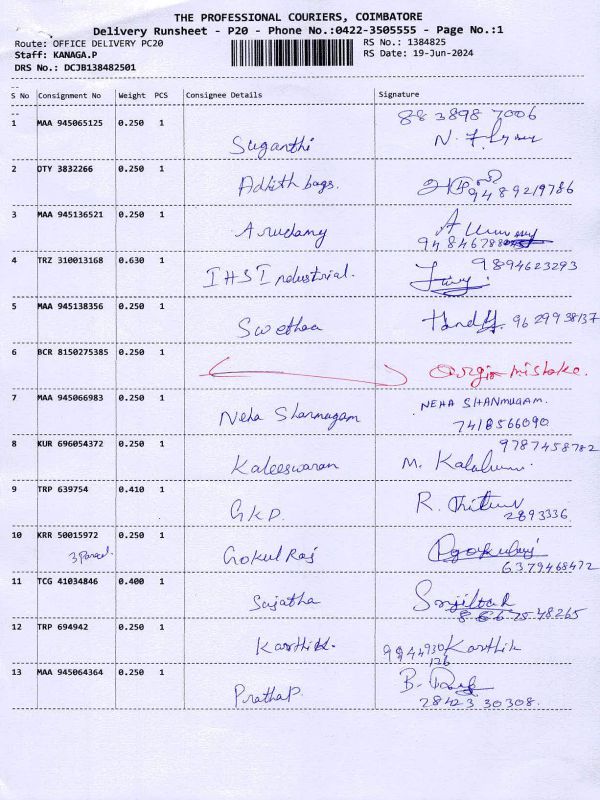 THE PROFESSIONAL COURIERS, COIMBATORE
Delivery Runsheet - P20 - Phone No.:0422-3505555 - Page No.:1
Route: OFFICE DELIVERY PC20 RS No.: 1384825
Staff: KANAGA.P RS Date: 19-Jun-2024
DRS No.: DCJB138482501
S No Consignment No Weight PCS Consignee Details Signature
1 MAA 945065125 0.250 1 Suganthi 883898 7006
2 OTY 3832266 0.250 1 Adhith bags. 9489219786
3 MAA 945136521 0.250 1 Arudamy
4 TRZ 310013168 0.630 1 IHS Industrial. 9894623293
5 MAA 945138356 0.250 1 Swethaa 9629938137
6 BCR 8150275385 0.250 1 mistake.
7 MAA 945066983 0.250 1 Neha Shanmugam NEHA SHANMUGAM.
7418566090
8 KUR 696054372 0.250 1 Kaleeswaran 9787458782
M.
9 TRP 639754 0.410 1 GKP R.
2893336
10 KRR 50015972 0.250 1 Gokul Raj
3 Parcel. 6379468472
11 TCG 41034846 0.400 1 Sujatha
12 TRP 694942 0.250 1 Karthik. 9944930 Karthik
126
13 MAA 945064364 0.250 1 Prathap. B.
28423 30308.